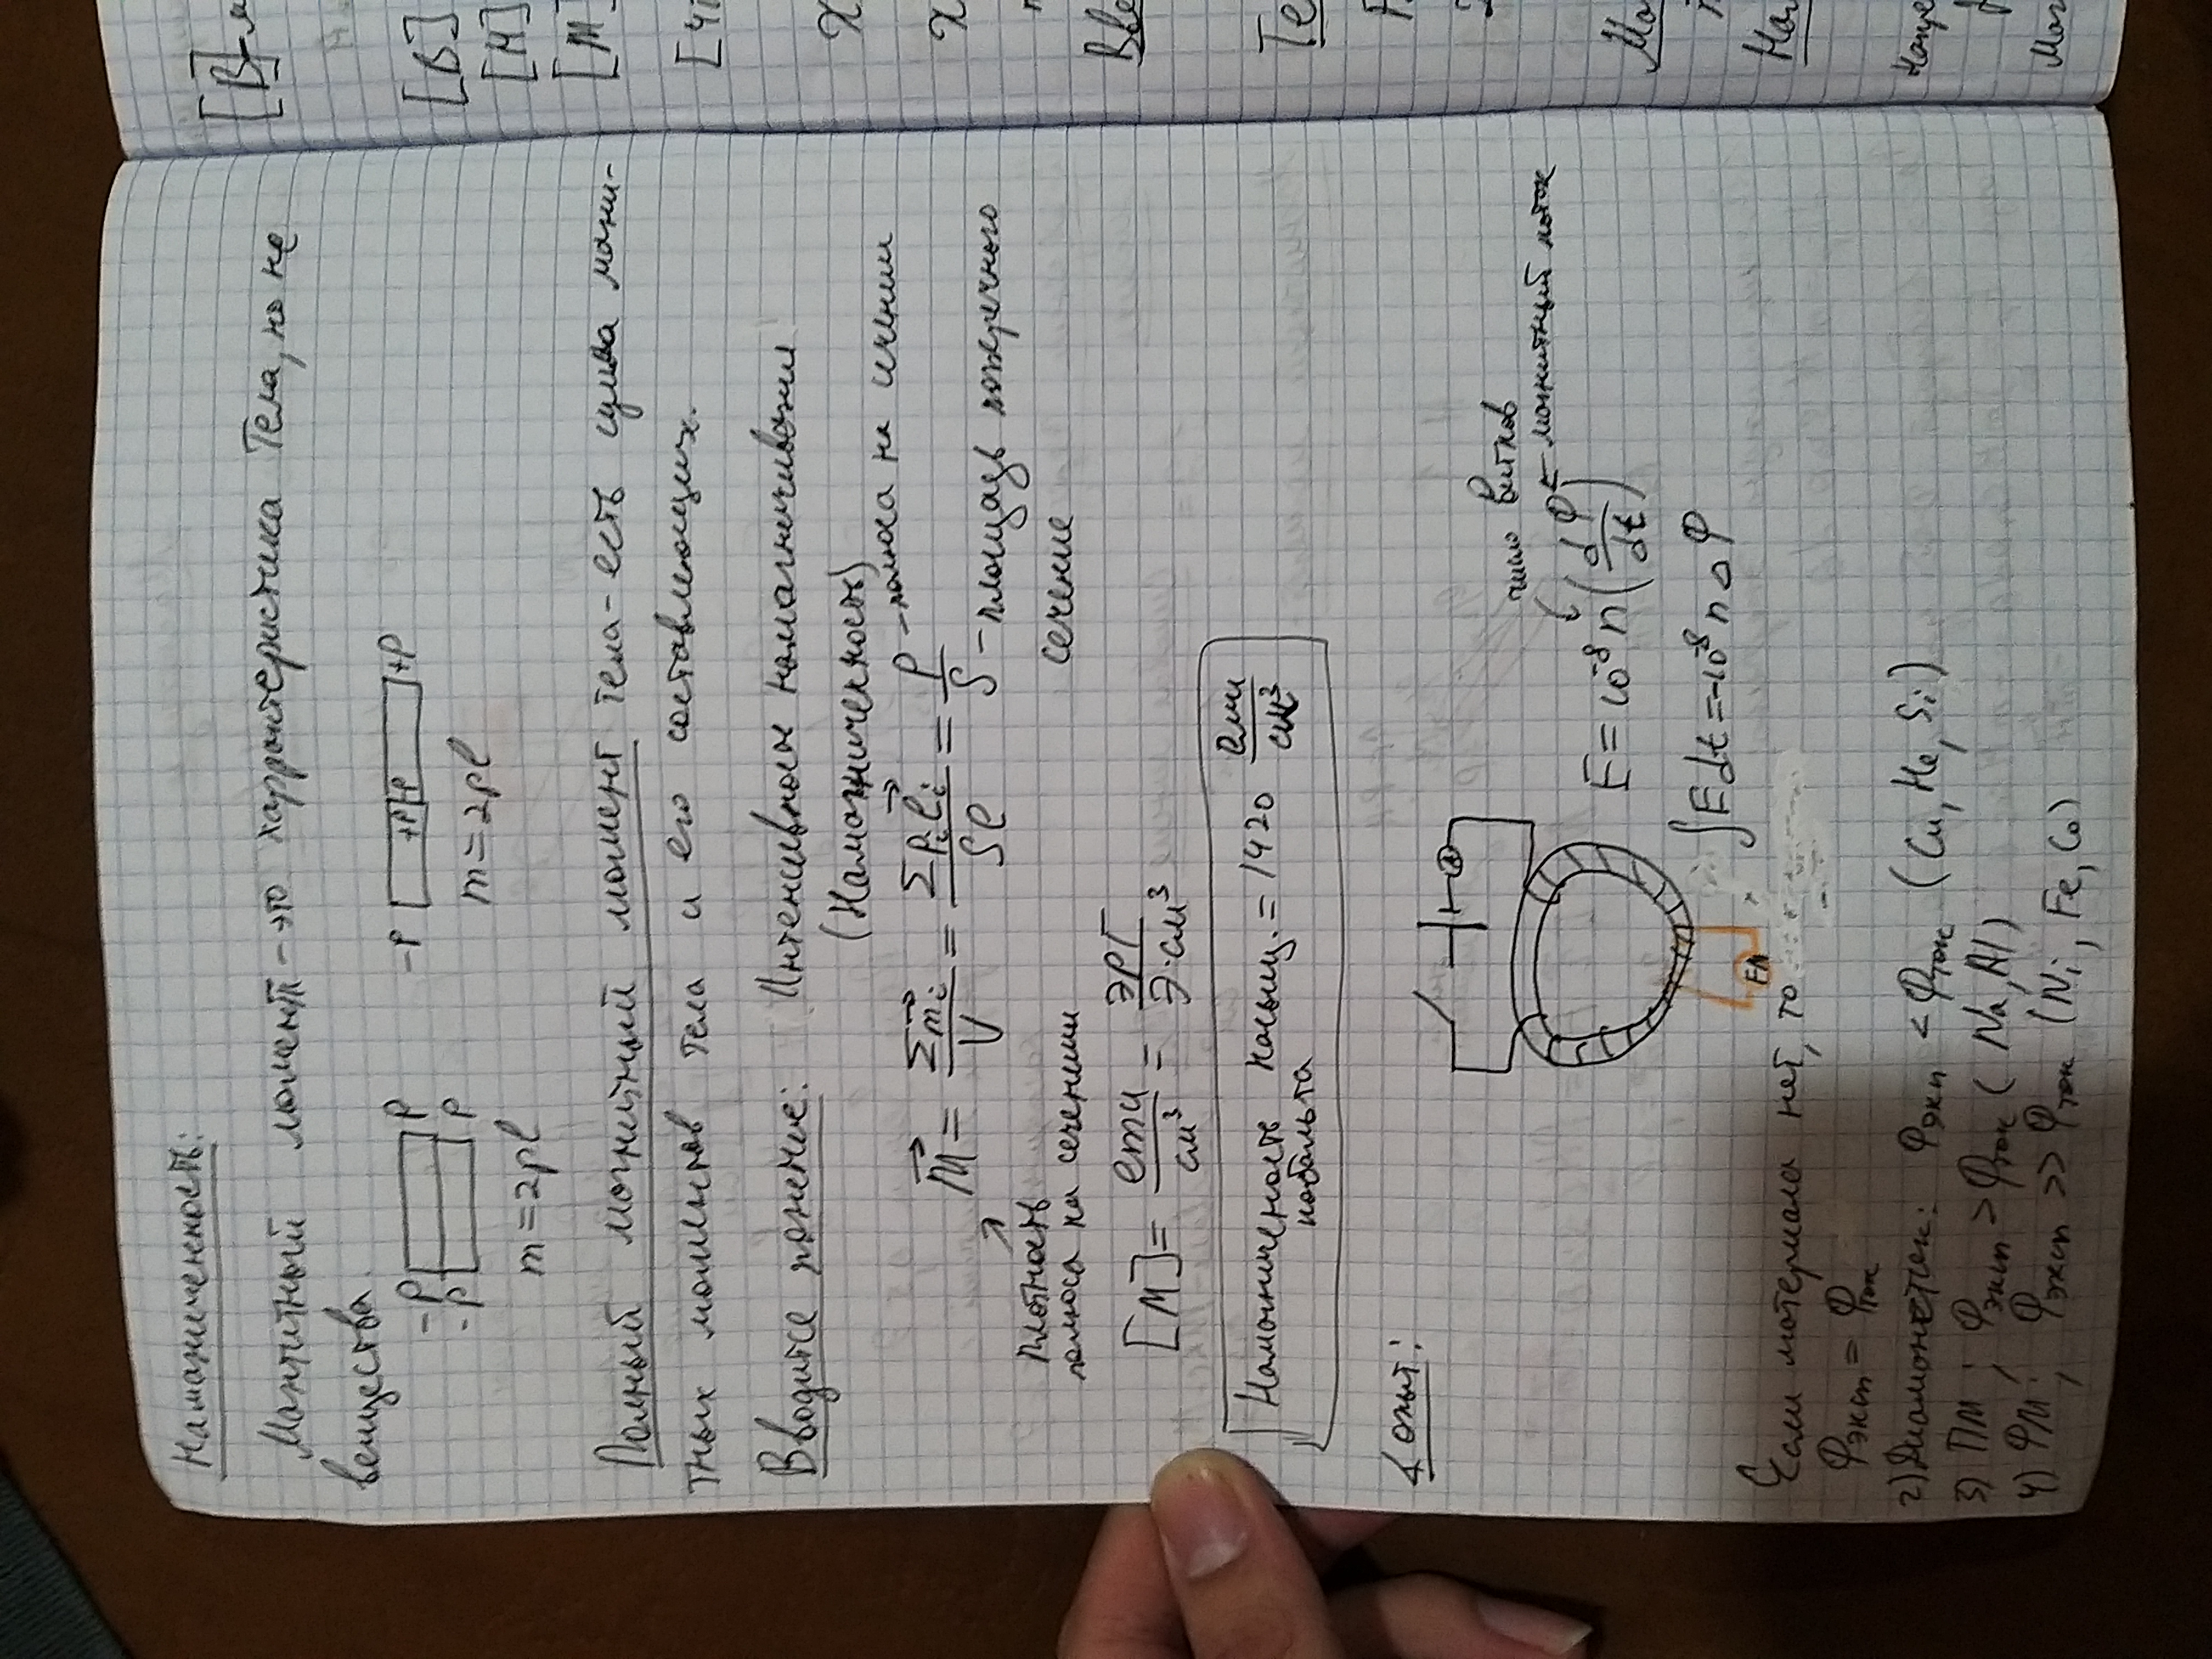 Намагниченность:
Магнитный момент – это характеристика тела, но не
вещества.
-P P -P +P -P +P
-P P m=2pl
m=2pl
Полный магнитный момент тела – есть сумма магни-
тных моментов тела и его составляющих.
Вводится понятие: Интенсивность намагничивания
(Намагниченность)
M⃗ = Σm⃗i / V = ΣPi l⃗i / Sl = P / S
P – полюса на сечении
S – площадь поперечного
сечение
плотность
полюса на сечении
[M] = emu / см³ = ЭРГ / Э·см³
Намагниченость насыщ. = 1420 ЕМИ / см³
кобальта
∢ опыт:
A
число витков
магнитный поток
E = 10⁻⁸ n (dФ / dt)
∫Edt = -10⁻⁸ n ΔФ
FM
Если материала нет, то
Фэксп = Фток
2) Диамагнетик: Фэкп < Фток (Cu, He, Si)
3) ПМ; Фэксп > Фток (Na, Al)
4) ФМ; Фэксп >> Фток (Ni, Fe, Co)
[B] – м
[B]
[H]
[M]
[4π
X
X
п
Вве
Те
P
2
Маг
Нап
Маг